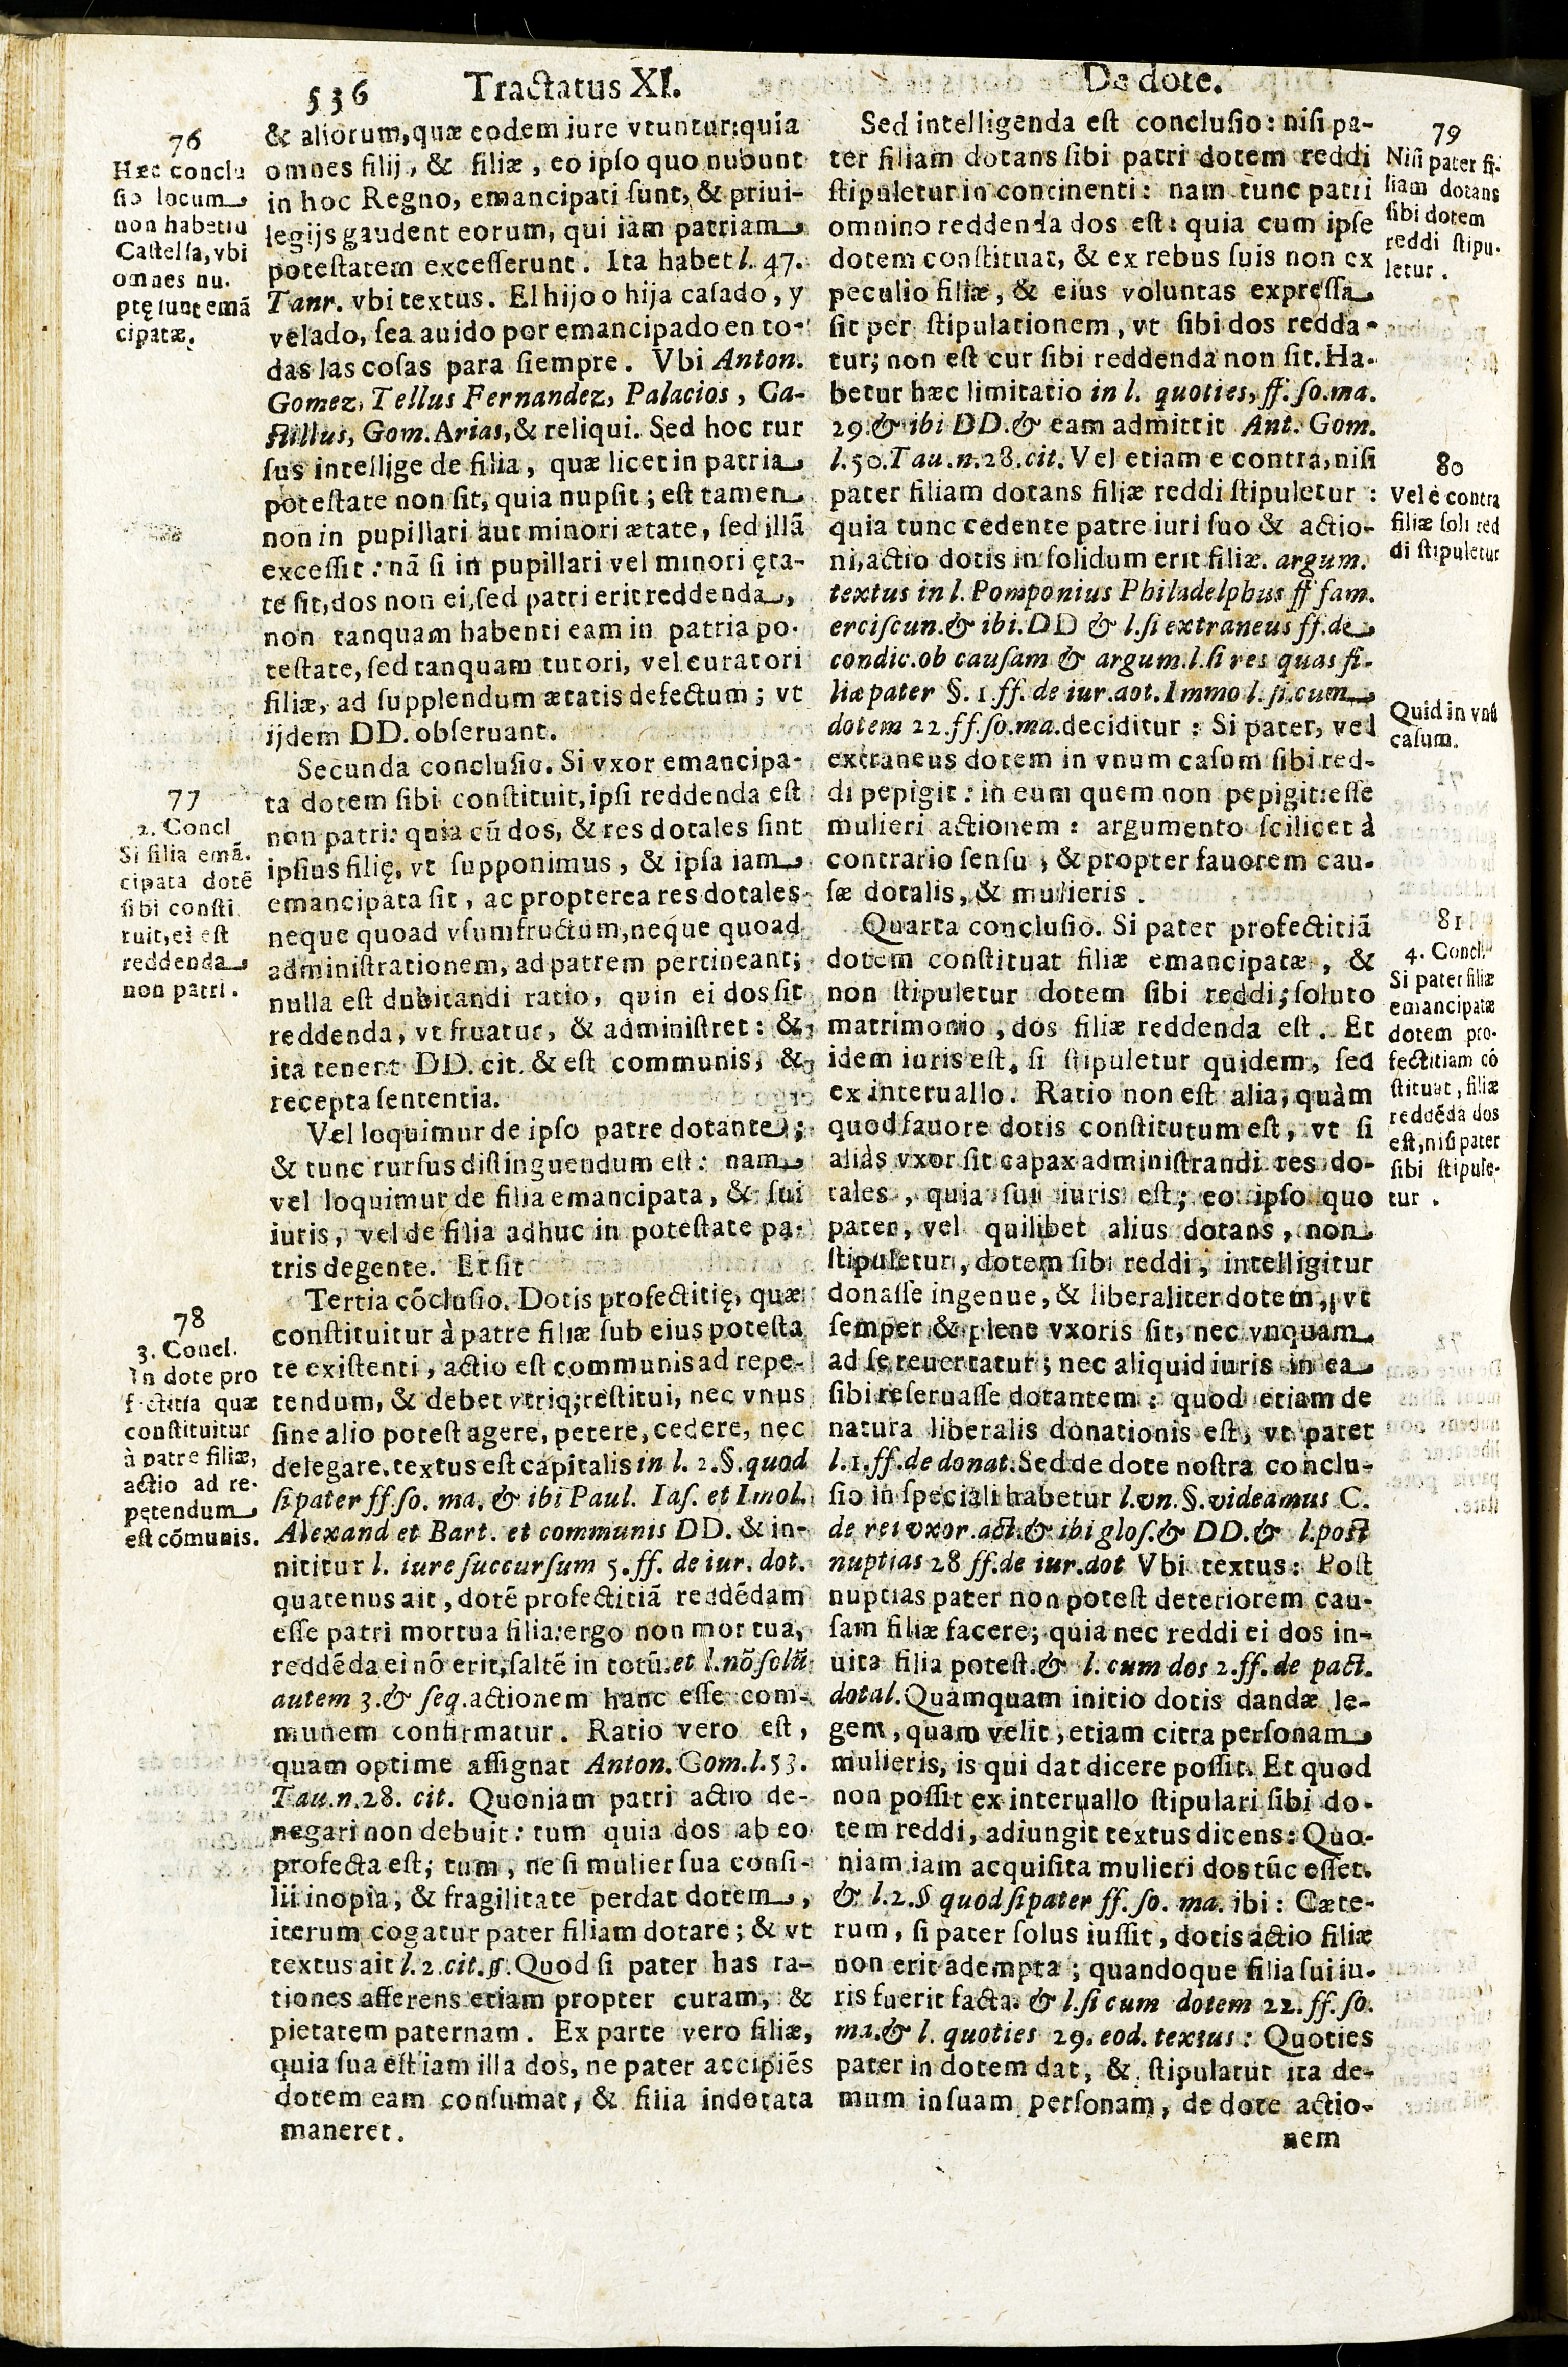 536 Tractatus XI. De dote.
76
Hæc conclu
sio locum
non habet in
Castella, vbi
omnes nu.
ptę sunt emã
cipatæ.
& aliorum, quæ eodem iure vtuntur: quia
omnes filij, & filiæ, eo ipso quo nubunt
in hoc Regno, emancipati sunt, & priui-
legijs gaudent eorum, qui iam patriam
potestatem excesserunt. Ita habet l. 47.
Tanr. vbi textus. El hijo o hija casado, y
velado, sea auido por emancipado en to-
das las cosas para siempre. Vbi Anton.
Gomez, Tellus Fernandez, Palacios, Ca-
stillus, Gom. Arias, & reliqui. Sed hoc rur
sus intellige de filia, quæ licet in patria
potestate non sit, quia nupsit; est tamen
non in pupillari aut minori ætate, sed illã
excessit: nã si in pupillari vel minori ęta-
te sit, dos non ei, sed patri erit reddenda,
non tanquam habenti eam in patria po-
testate, sed tanquam tutori, vel curatori
filiæ, ad supplendum ætatis defectum; vt
ijdem DD. obseruant.
77
2. Concl
Si filia emã.
cipata dotẽ
sibi consti
tuit, ei est
reddenda
non patri.
Secunda conclusio. Si vxor emancipa-
ta dotem sibi constituit, ipsi reddenda est
non patri: quia cũ dos, & res dotales sint
ipsius filię, vt supponimus, & ipsa iam
emancipata sit, ac propterea res dotales
neque quoad vsumfructum, neque quoad
administrationem, ad patrem pertineant;
nulla est dubitandi ratio, quin ei dos sit
reddenda, vt fruatur, & administret: &
ita tenent DD. cit. & est communis, &
recepta sententia.
Vel loquimur de ipso patre dotante;
& tunc rursus distinguendum est: nam
vel loquimur de filia emancipata, & sui
iuris, vel de filia adhuc in potestate pa-
tris degente. Et sit
78
3. Concl.
In dote pro
fectitia quæ
constituitur
à patre filiæ,
actio ad re-
pętendum
est cõmunis.
Tertia cõclusio. Dotis profectitię, quæ
constituitur à patre filiæ sub eius potesta
te existenti, actio est communis ad repe-
tendum, & debet vtriq; restitui, nec vnus
sine alio potest agere, petere, cedere, nec
delegare. textus est capitalis in l. 2. §. quod
si pater ff. so. ma. & ibi Paul. Ias. et Imol.
Alexand et Bart. et communis DD. & in-
nititur l. iure succursum 5. ff. de iur. dot.
quatenus ait, dotẽ profectitiã reddẽdam
esse patri mortua filia: ergo non mortua,
reddẽda ei nõ erit, saltẽ in totũ. et l. nõ solũ
autem 3. & seq. actionem hanc esse com-
munem confirmatur. Ratio vero est,
quam optime assignat Anton. Gom. l. 53.
Tau. n. 28. cit. Quoniam patri actio de-
negari non debuit: tum quia dos ab eo
profecta est; tum, ne si mulier sua consi-
lii inopia, & fragilitate perdat dotem,
iterum cogatur pater filiam dotare; & vt
textus ait l. 2. cit. §. Quod si pater has ra-
tiones afferens etiam propter curam, &
pietatem paternam. Ex parte vero filiæ,
quia sua est iam illa dos, ne pater accipiẽs
dotem eam consumat, & filia indotata
maneret.
Sed intelligenda est conclusio: nisi pa-
ter filiam dotans sibi patri dotem reddi
stipuletur in continenti: nam tunc patri
omnino reddenda dos est: quia cum ipse
dotem constituat, & ex rebus suis non ex
peculio filiæ, & eius voluntas expressa
sit per stipulationem, vt sibi dos redda-
tur; non est cur sibi reddenda non sit. Ha-
betur hæc limitatio in l. quoties, ff. so. ma.
29. & ibi DD. & eam admittit Ant. Gom.
l. 50. Tau. n. 28. cit. Vel etiam e contra, nisi
pater filiam dotans filiæ reddi stipuletur:
quia tunc cedente patre iuri suo & actio-
ni, actio dotis in solidum erit filiæ. argum.
textus in l. Pomponius Philadelphus ff fam.
erciscun. & ibi. DD & l. si extraneus ff. de
condic. ob causam & argum. l. si res quas fi-
liæ pater §. 1. ff. de iur. dot. Immo l. si. cum
dotem 22. ff. so. ma. deciditur: Si pater, vel
extraneus dotem in vnum casum sibi red-
di pepigit: in eum quem non pepigit: esse
mulieri actionem: argumento scilicet à
contrario sensu, & propter fauorem cau-
sæ dotalis, & mulieris.
79
Nisi pater fi-
liam dotans
sibi dotem
reddi stipu-
letur.
80
Vel è contra
filiæ soli red
di stipuletur
Quid in vnũ
casum.
Quarta conclusio. Si pater profectitiã
dotem constituat filiæ emancipatæ, &
non stipuletur dotem sibi reddi; soluto
matrimonio, dos filiæ reddenda est. Et
idem iuris est, si stipuletur quidem, sed
ex interuallo. Ratio non est alia, quàm
quod fauore dotis constitutum est, vt si
aliàs vxor sit capax administrandi res do-
tales, quia sui iuris est; eo ipso quo
pater, vel quilibet alius dotans, non
stipuletur, dotem sibi reddi, intelligitur
donasse ingenue, & liberaliter dotem, vt
semper & plene vxoris sit, nec vnquam
ad se reuertatur; nec aliquid iuris in ea
sibi reseruasse dotantem: quod etiam de
natura liberalis donationis est, vt patet
l. 1. ff. de donat. Sed de dote nostra conclu-
sio in speciali habetur l. vn. §. videamus C.
de rei vxor. act. & ibi glos. & DD. & l. post
nuptias 28 ff. de iur. dot Vbi textus: Post
nuptias pater non potest deteriorem cau-
sam filiæ facere; quia nec reddi ei dos in-
uita filia potest. & l. cum dos 2. ff. de pact.
dotal. Quamquam initio dotis dandæ le-
gem, quam velit, etiam citra personam
mulieris, is qui dat dicere possit. Et quod
non possit ex interuallo stipulari sibi do-
tem reddi, adiungit textus dicens: Quo-
niam iam acquisita mulieri dos tũc esset.
& l. 2. § quod si pater ff. so. ma. ibi: Cæte-
rum, si pater solus iussit, dotis actio filiæ
non erit adempta; quandoque filia sui iu-
ris fuerit facta. & l. si cum dotem 22. ff. so.
ma. & l. quoties 29. eod. textus: Quoties
pater in dotem dat, & stipulatur ita de-
mum in suam personam, de dote actio-
nem
81
4. Concl.
Si pater filiæ
emancipatæ
dotem pro-
fectitiam cõ
stituat, filiæ
reddẽda dos
est, nisi pater
sibi stipule-
tur.